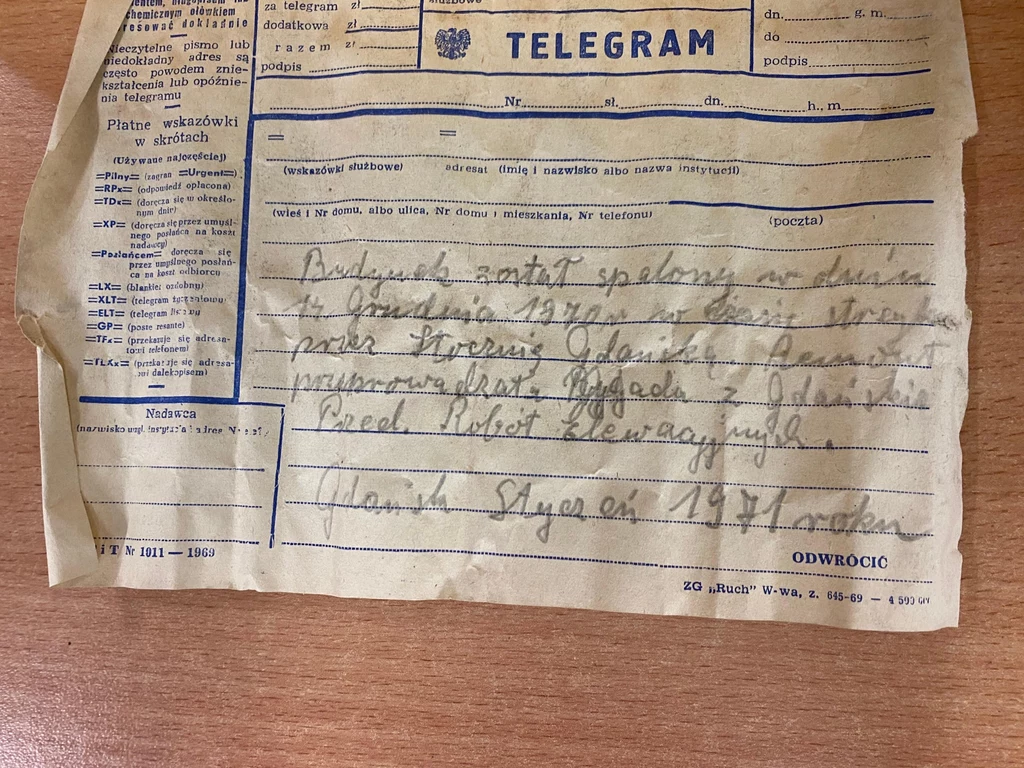 chemicznym ołówkiem
resować dokładnie
Nieczytelne pismo lub
niedokładny adres są
często powodem znie-
kształcenia lub opóźnie-
nia telegramu
Płatne wskazówki
w skrótach
(Używane najczęściej)
=Pilny= (zagran =Urgent=)
=RPx= (odpowiedź opłacona)
=TDx= (doręcza się w określo-
nym dniu)
=XP= (doręcza się przez umyśl-
nego posłańca na koszt
nadawcy)
=Posłańcem= doręcza się
przez umyślnego posłań-
ca na koszt odbiorcy
=LX= (blankiet ozdobny)
=XLT= (telegram
=ELT= (telegram
=GP= (poste restante)
=TFx= (przekazuje się adresa-
towi telefonem)
=TLXx= (przekazuje się adresa-
towi dalekopisem)
Nadawca
za telegram zł
dodatkowa zł
razem zł
podpis
służbowe
TELEGRAM
dn. g. m.
do
podpis
Nr sł. dn. h., m
= =
(wskazówki służbowe) adresat (imię i nazwisko albo nazwa instytucji)
(wieś i Nr domu, albo ulica, Nr domu i mieszkania, Nr telefonu) (poczta)
Budynek został spalony w dniu
Grudnia 1970r w czasie strajku
przez Stocznię Gdańską. Remont
przyprowadzała Brygada z Gdańskie
Przed. Robót Elewacyjnych.
Gdańsk Styczeń 1971 roku
iT Nr 1011 — 1969
ODWRÓCIĆ
ZG „Ruch" W-wa, z. 645-69 — 4 500